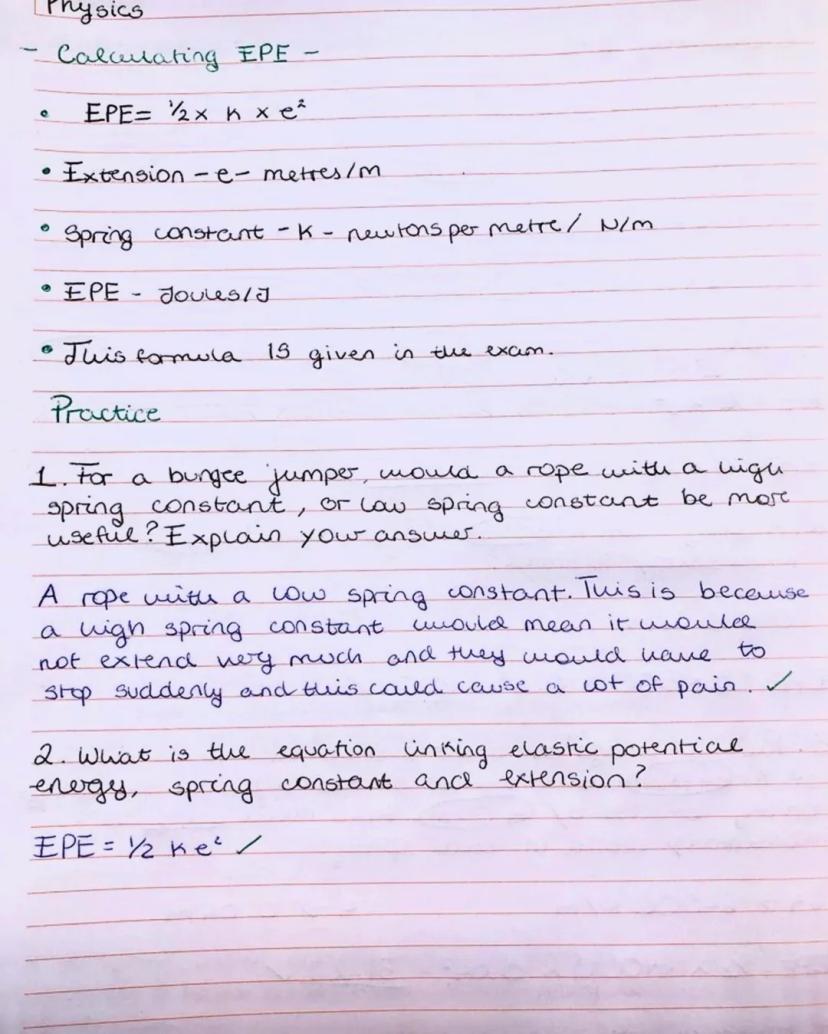 Physics
- Calculating EPE -
• EPE = ½ x K x e²
• Extension - e - metres/m
• Spring constant - K - newtons per metre/ N/m
• EPE - Joules/J
• This formula is given in the exam.
Practice
1. For a bungee jumper, would a rope with a high
spring constant, or low spring constant be more
useful? Explain your answer.
A rope with a low spring constant. This is because
a high spring constant would mean it would
not extend very much and they would have to
stop suddenly and this could cause a lot of pain. ✓
2. What is the equation linking elastic potential
energy, spring constant and extension?
EPE = ½ K e² ✓